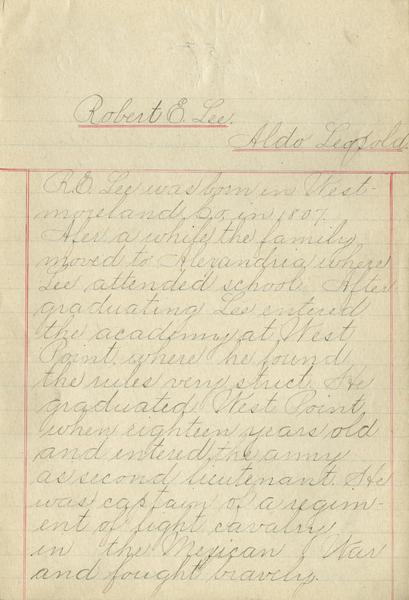 Robert E. Lee.
Aldo Leopold.
R.E. Lee was born in West-
moreland Co. in 1807.
Afer a while the family
moved to Alexandria where
Lee attended school. After
graduating Lee entered
the academy at West
Point, where he found
the rules very strict. He
graduated West Point,
when eighteen years old
and entered the army
as second lieutenant. He
was captain of a regim-
ent of light cavalry
in the Mexican War
and fought bravely.